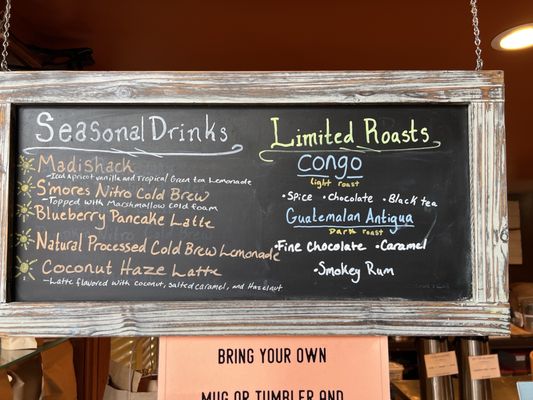 Seasonal Drinks
Madishack
-Iced Apricot vanilla and Tropical Green tea Lemonade
S'mores Nitro Cold Brew
-Topped with Marshmallow cold foam
Blueberry Pancake Latte
Natural Processed Cold Brew Lemonade
Coconut Haze Latte
-Latte flavored with coconut, salted caramel, and Hazelnut
Limited Roasts
Congo
light roast
•Spice •Chocolate •Black tea
Guatemalan Antigua
Dark roast
•Fine Chocolate •Caramel
•Smokey Rum
BRING YOUR OWN
MUG OR TUMBLER AND